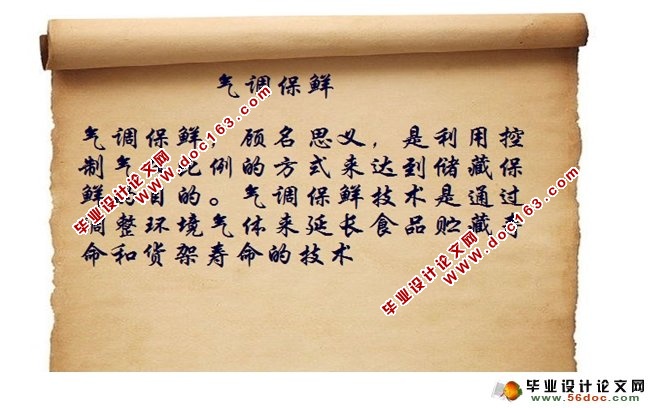 气调保鲜
气调保鲜，顾名思义，是利用控
制气 比例的方式来达到储藏保
鲜 目的。气调保鲜技术是通过
调整环境气体来延长食品贮藏寿
命和货架寿命的技术
毕业设计论文网
www.doc163.com
毕业设计论文网
www.doc163.com
毕业设计论文网
www.56doc.com